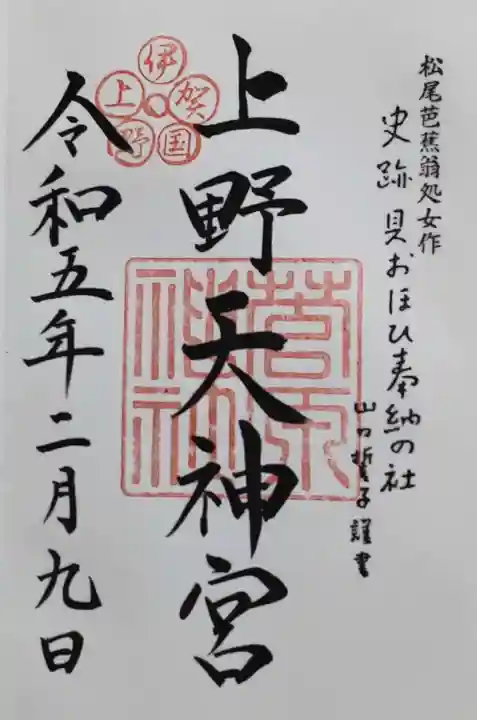 松尾芭蕉翁処女作
史跡 貝おほひ奉納の社
山口誓子謹書
上野天神宮
伊賀国上野
令和五年二月九日